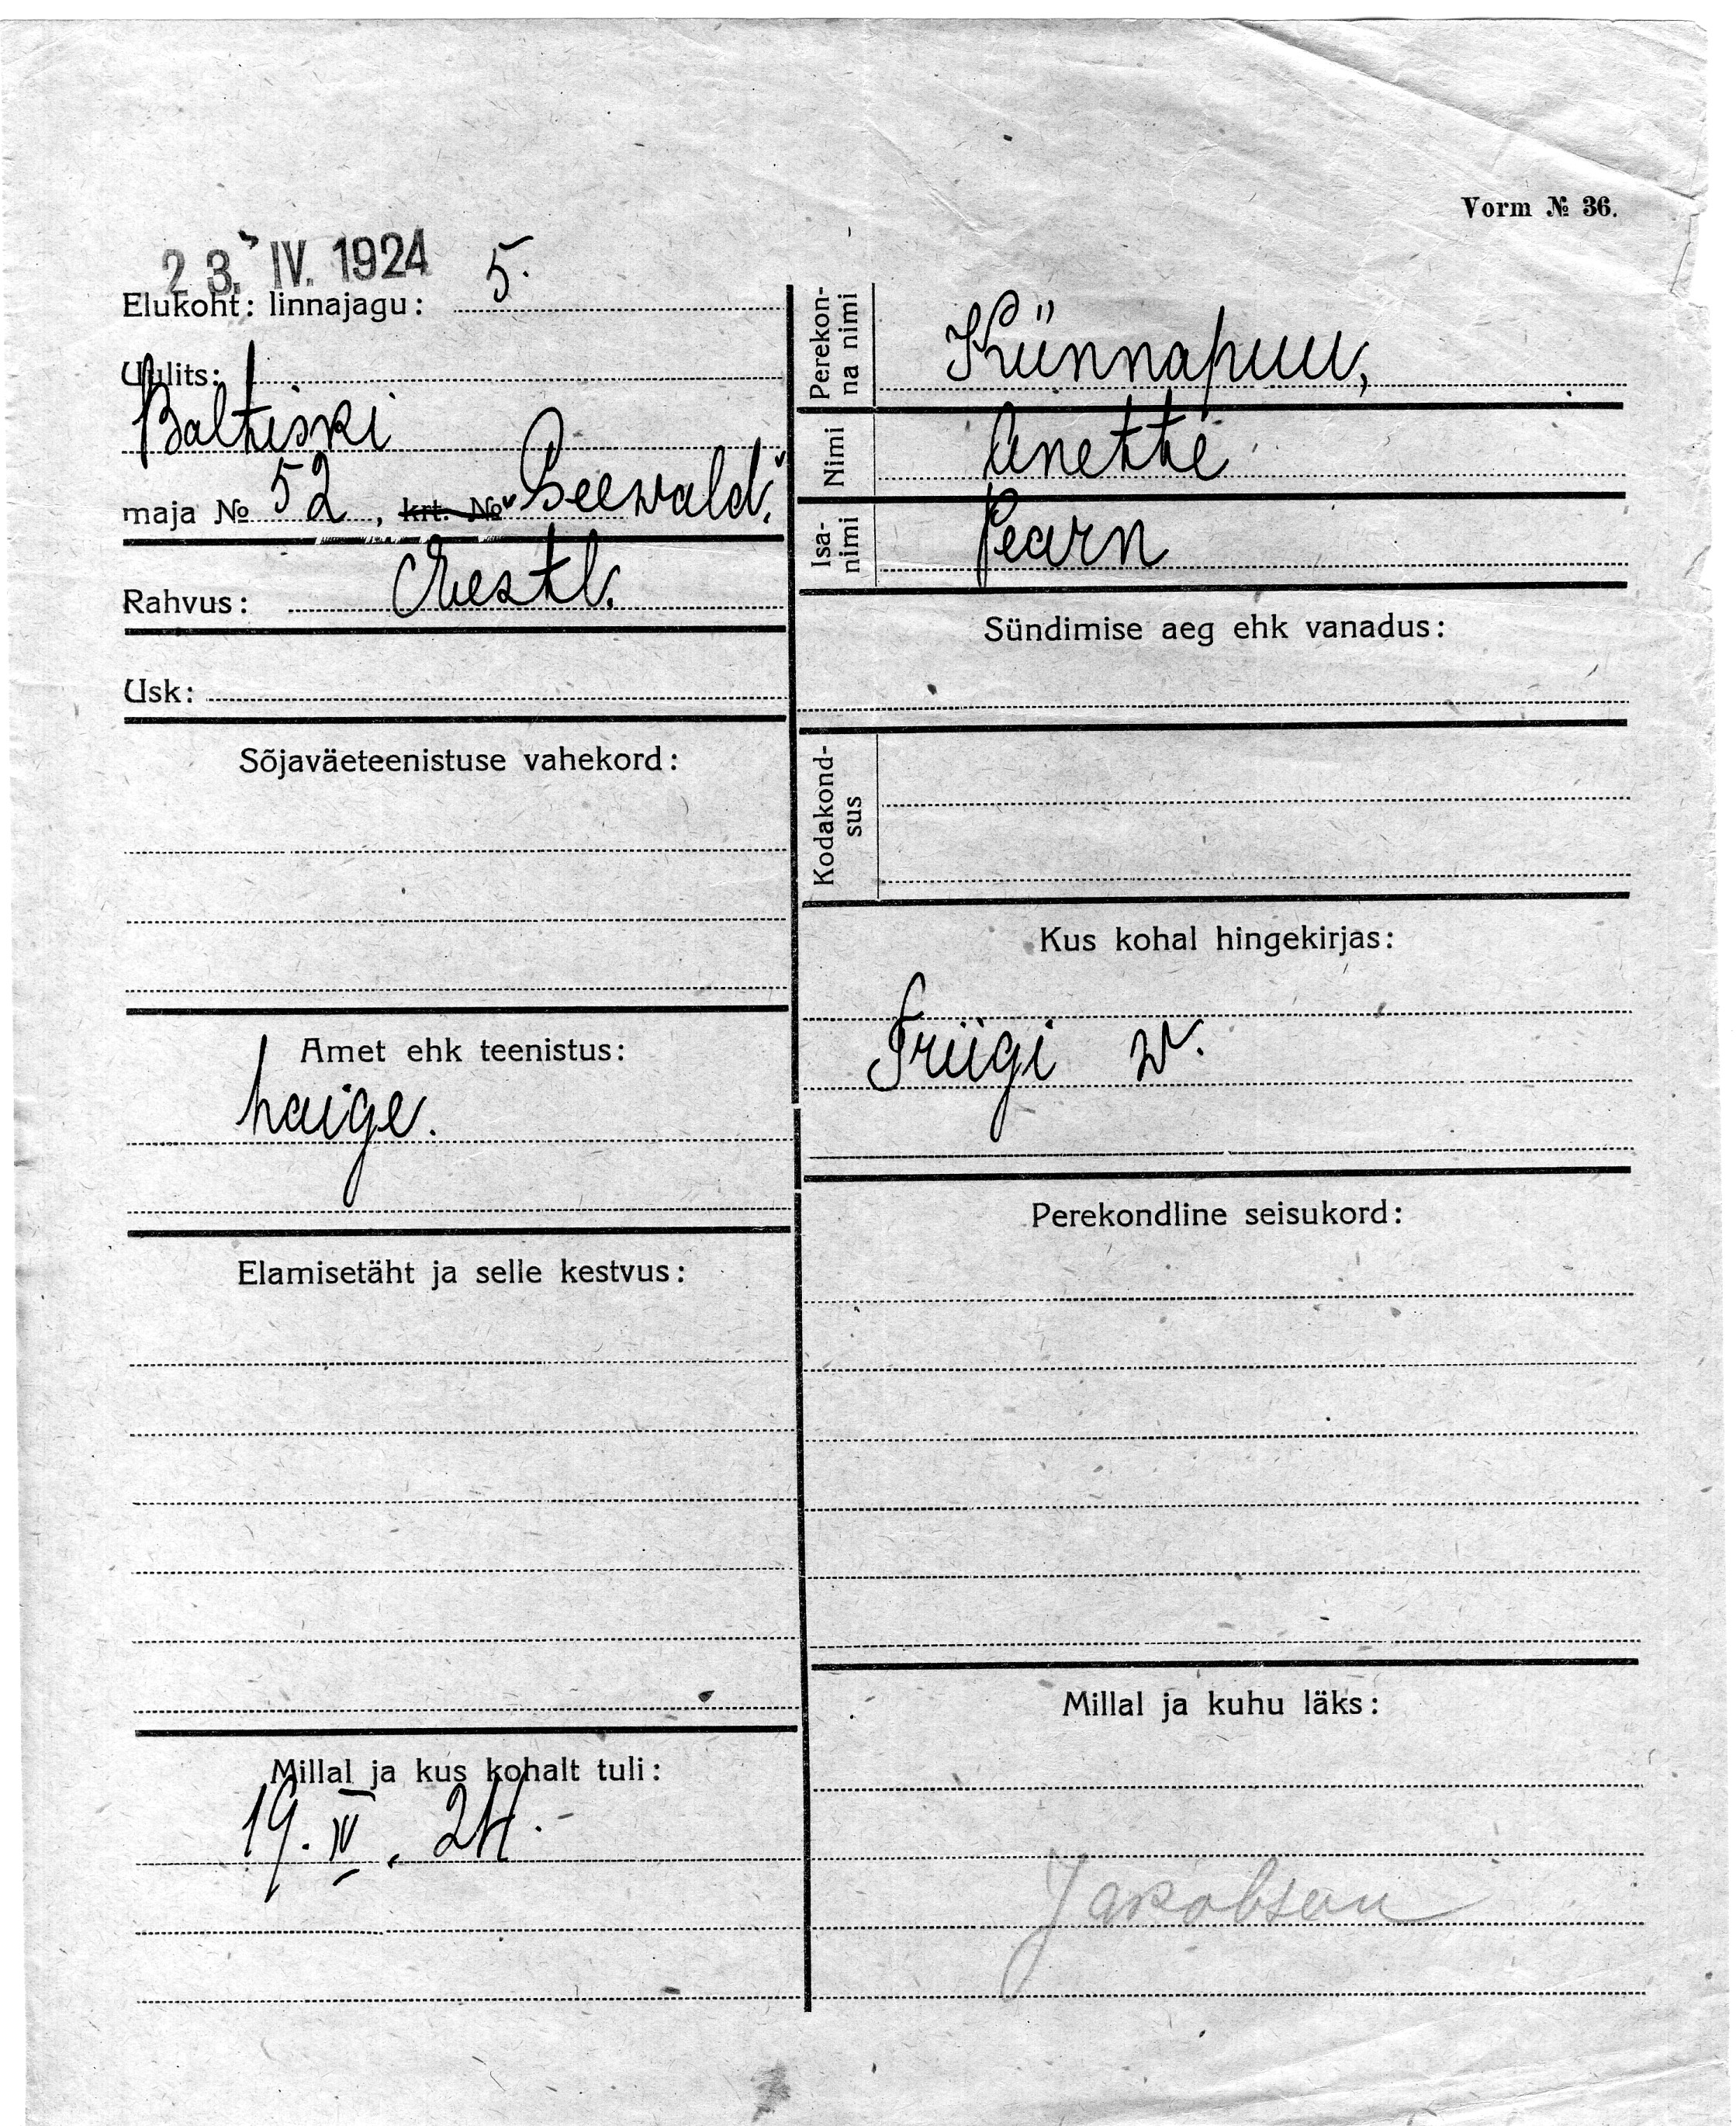 Vorm № 36.
23. IV. 1924
Elukoht: linnajagu: 5.
Uulits:
Baltiski
maja № 52, krt. № „Seewald“.
Rahvus: Eestl.
Usk:
Sõjaväeteenistuse vahekord:
Amet ehk teenistus:
haige.
Elamisetäht ja selle kestvus:
Millal ja kus kohalt tuli:
19. IV. 24.-
Perekon-
na nimi Künnapuu,
Nimi Anette
Isa-
nimi Pearn
Sündimise aeg ehk vanadus:
Kodakond-
sus
Kus kohal hingekirjas:
Friigi w.
Perekondline seisukord:
Millal ja kuhu läks:
Jakobson